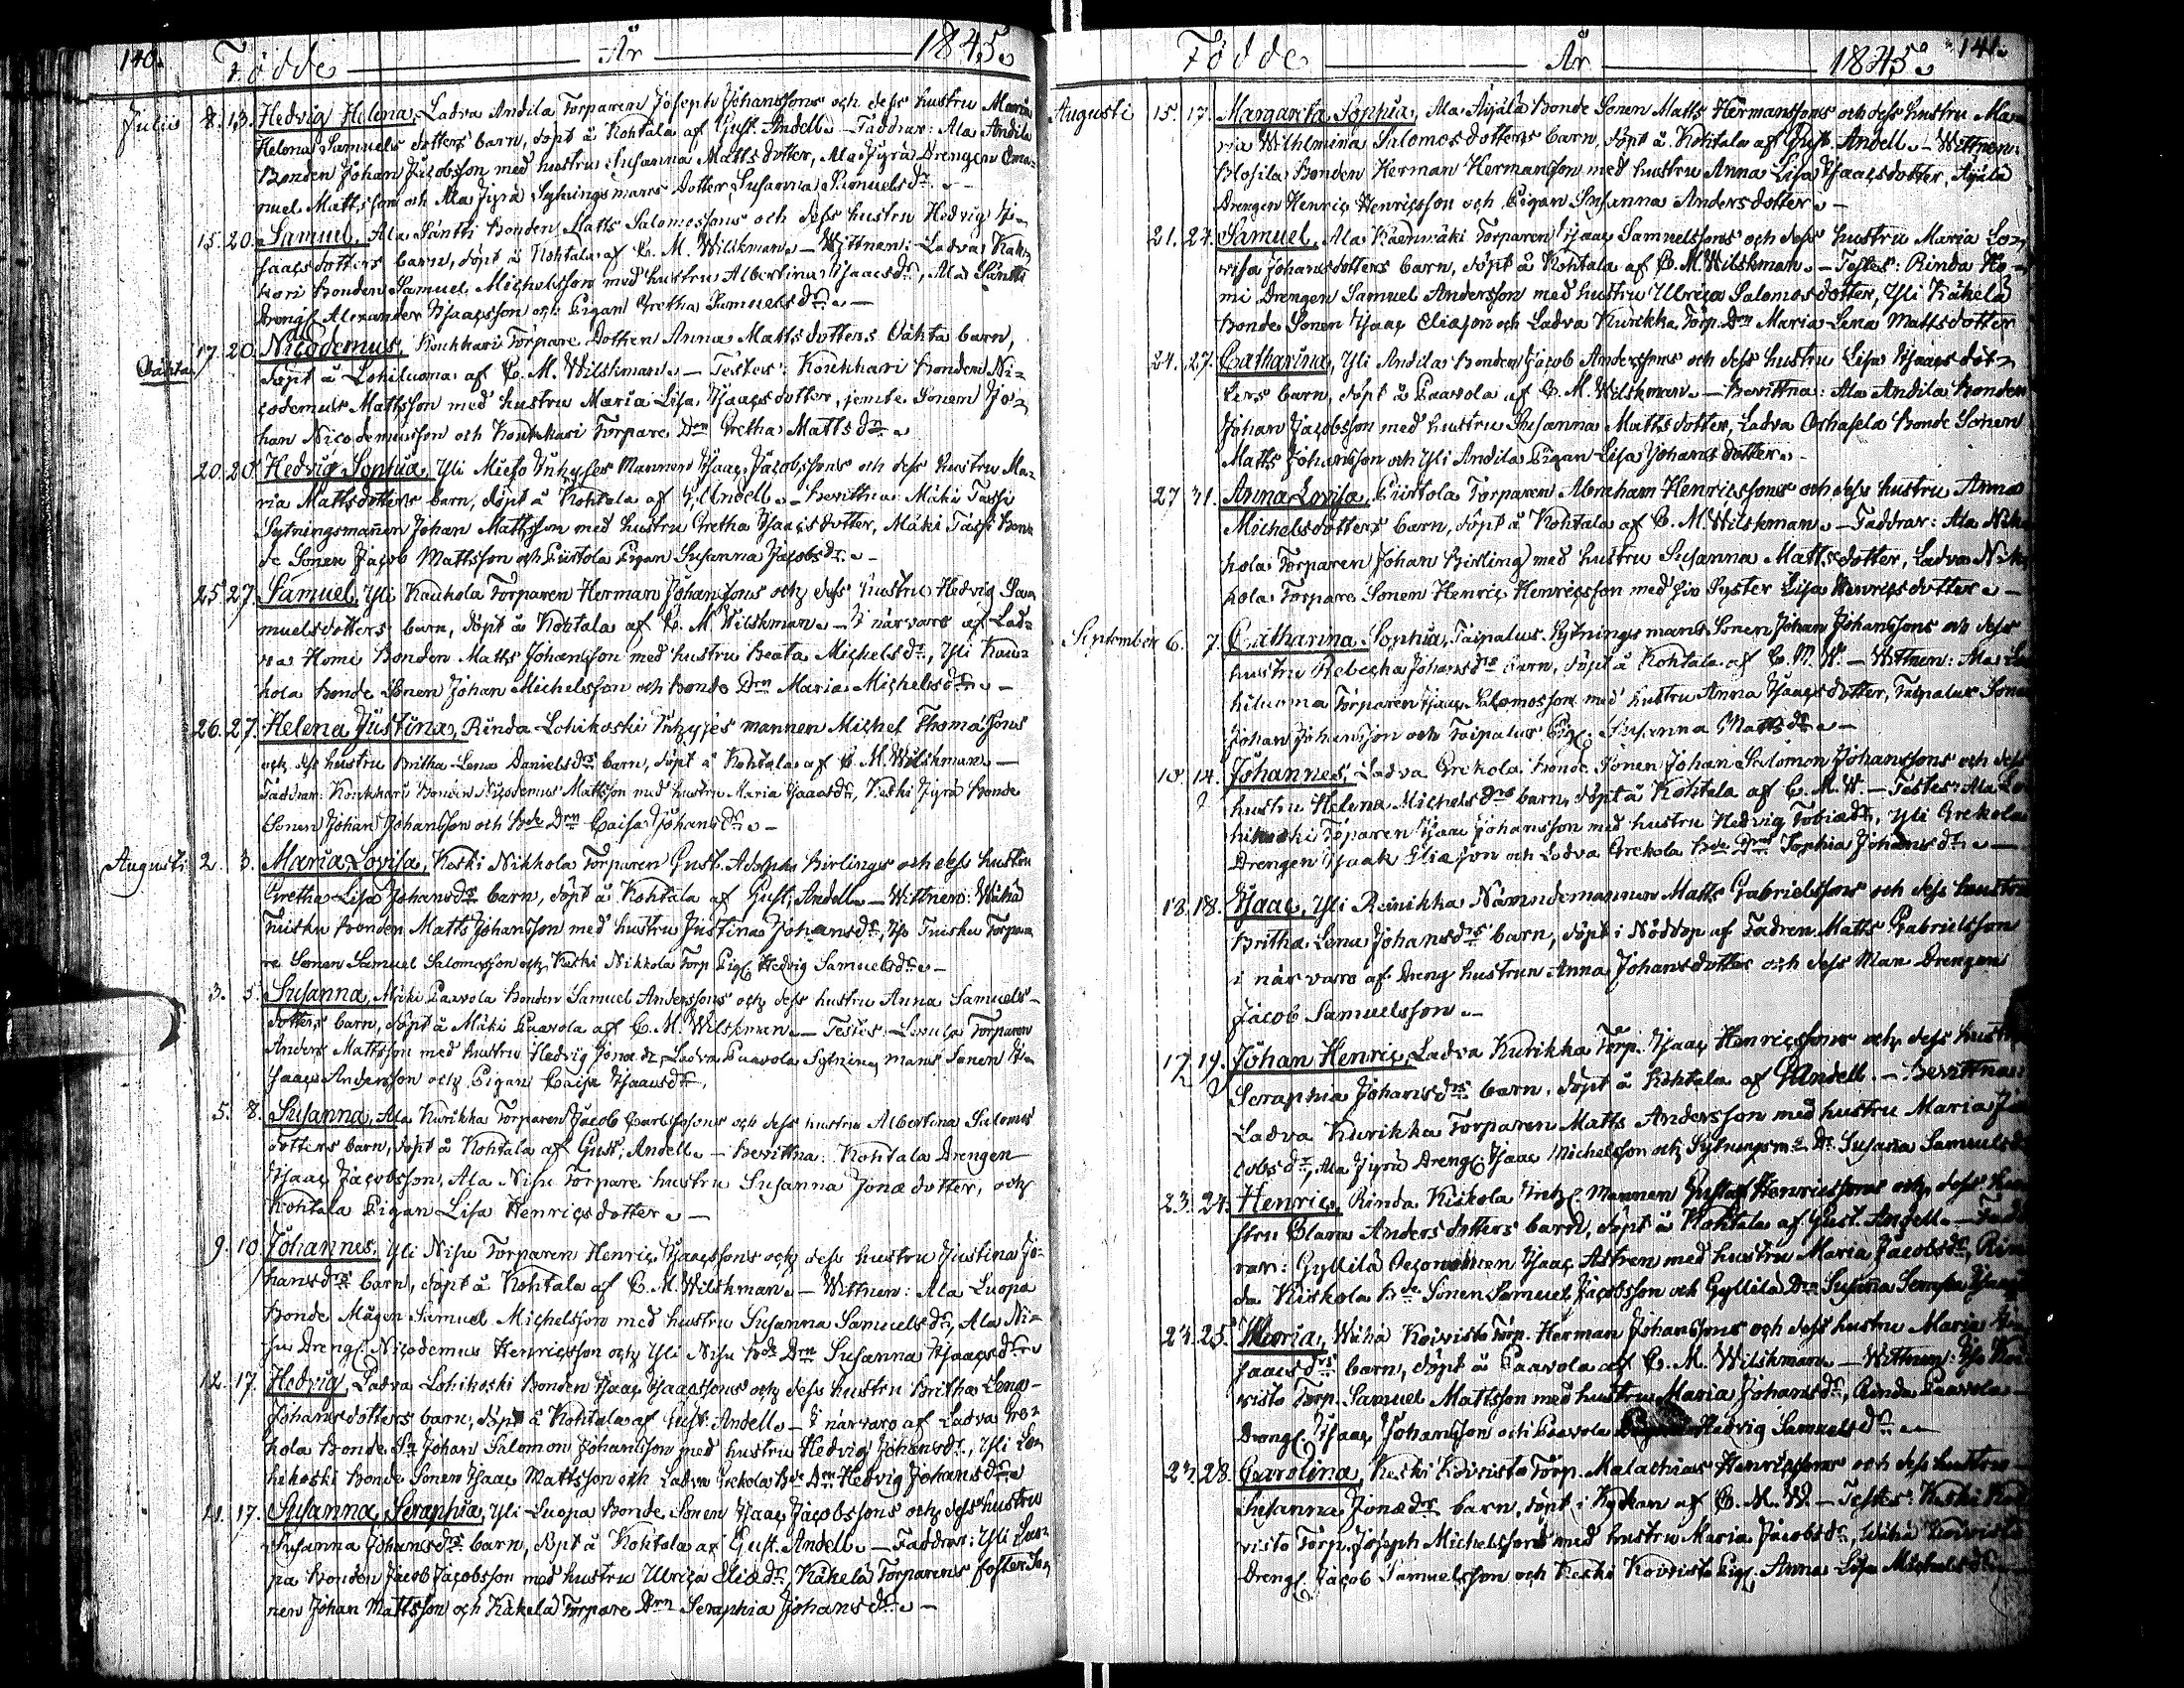 140. Födde År 1845.
Julii 8. 13. Hedvig Helena, Ladva Andila Torparen Joseph Johanssons och dess hustru Maria
Helena Samuels dotters barn, döpt å Kohtala af Gust. Andell. – Faddrar: Ala Andila
Bonden Johan Jacobsson med hustru Susanna Matts dotter, Ala Jyrä Drengen Ema-
nuel Mattsson och Ala Jyrä Sytningsmans Dotter Susanna Samuelsdr. –
15. 20. Samuel, Ala Säntti Bonden Matts Salomossons och dess hustru Hedvig I-
saacsdotters barn, döpt å Kohtala af C. M. Wilskman. – Wittnen: Ladva
Bonden Samuel Michelsson med hustru Albertina Isaacsdr, Ala Säntti
Drengn Alexander Isaacsson och Pigan Gretha Samuelsdr. –
Oäkta 17. 20. Nicodemus, Koukkari Torpare Dottren Anna Matts dotters Oäkta barn,
döpt å Lohiluoma af C. M. Wilskman. – Testes: Koukkari Bonden Ni-
codemus Mattsson med hustru Maria Lisa Isaacsdotter, jemte Sonen Jo-
han Nicodemusson och Koukkari Torpare Drn Gretha Mattsdr.
20. 20. Hedvig Sophia, Yli Mieto Inhyses Mannen Isaac Jacobssons och dess hustru Ma-
ria Matts dotters barn, döpt å Kohtala af G. Andell. – Bevittna: Mäki Tassi
Sytningsmanen Johan Mattsson med hustru Gretha Isaacsdotter, Mäki Tassi Bon-
de Sonen Jacob Mattsson och Piirtola Pigan Susanna Jacobsdr. –
25. 27. Samuel, Yli Kauhola Torparen Herman Johanssons och dess hustru Hedvig Sa-
muelsdotters barn, döpt å Kohtala af C. M. Wilskman. – I närvaro af Lad-
va Homi Bonden Matts Johansson med hustru Beata Michelsdr, Yli Kau-
hola Bonde Sonen Johan Michelsson och Bonde Drn Maria Michelsdr. –
26. 27. Helena Justina, Rinda Lohikoski Inhyses mannen Michel Thomassons
och dess hustru Britha Lena Danielsdrs barn, döpt å Kohtala af C. M. Wilskman. –
Faddrar: Koukkari Bonden Nicodemus Mattsson med hustru Maria Isaacsdr, Keski Jyrä Bonde
Sonen Johan Johansson och Bde Drn Caisa Johansdr. –
Augusti 2. 3. Maria Lovisa, Keski Nikkola Torparen Gust. Adolph Birlings och dess hustru
Gretha Lisa Johansdrs barn, döpt å Kohtala af Gust. Andell. – Wittnen: Wähä
Tuisku Bonden Matts Johansson med hustru Justina Johansdr, Iso Tuisku Torpa-
re Sonen Samuel Salomosson och Keski Nikkola Torp. Pign Hedvig Samuelsdr. –
3. 5. Susanna, Mäki Paavola Bonden Samuel Anderssons och dess hustru Anna Samuels-
dotters barn, döpt å Mäki Paavola af C. M. Wilskman. – Testes: Torparen
Anders Mattsson med hustru Hedvig Jonædr, Ladva Paavola Sytnings mans Sonen I-
saac Andersson och Pigan Caisa Isaacsdr.
5. 8. Susanna, Ala Kurikka Torparen Jacob Carlssons och dess hustru Albertina Salomos
dotters barn, döpt å Kohtala af Gust. Andell. – Bevittna: Kohtala Drengen
Isaac Jacobsson, Ala Nisu Torpare hustru Susanna Jonædotter, och
Kohtala Pigan Lisa Henricsdotter. –
9. 10. Johannes, Yli Nisu Torparen Henric Isaacssons och dess hustru Justina Jo-
hansdrs barn, döpt å Kohtala af C. M. Wilskman. – Wittnen: Ala Luopa
Bonde Mågen Samuel Michelsson med hustru Susanna Samuelsdr, Ala Ni-
su Drengn Nicodemus Henricsson och Yli Nisu Bde Drn Susanna Isaacsdr.
12. 17. Hedvig, Ladva Lohikoski Bonden Isaac Isaacssons och dess hustru Britha Lena
Johansdotters barn, döpt å Kohtala af Gust. Andell. – I närvaro af Ladva Gre-
kola Bonde Sn Johan Salomon Johansson med hustru Hedvig Johansdr, Yli Lo-
hekoski Bonde Sonen Isaac Mattsson och Ladva Grekola Bde Drn Hedvig Johansdr.
11. 17. Susanna Seraphia, Yli Luopa Bonde Sonen Isaac Jacobssons och dess hustru
Susanna Johansdrs barn, döpt å Kohtala af Gust. Andell. – Faddrar: Yli Luo-
pa Bonden Jacob Jacobsson med hustru Ulrica Eliædr, Käkelä Torparens foster So-
nen Johan Mattsson och Käkelä Torpare Drn Seraphia Johansdr. –
Födde År 1845. 141.
Augusti 15. 17. Margareta Sophia, Ala Äijälä Bonde Sonen Matts Hermanssons och dess hustru Ma-
ria Wilhelmina Salomosdotters barn, döpt å Kohtala af Gust. Andell. – Wittnen:
Klosila Bonden Herman Hermansson med hustru Anna Lisa Isaacsdotter, Äijälä
Drengen Henric Henricsson och Pigan Susanna Andersdotter. –
21. 24. Samuel, Ala Käenmäki Torparen Isaac Samuelssons och dess hustru Maria Lo-
visa Johansdotters barn, döpt å Kohtala af C. M. Wilskman. – Testes: Rinda Ho-
mi Drengen Samuel Andersson med hustru Ulrica Salomosdotter, Yli Käkelä
Bonde Sonen Isaac Eliasson och Ladva Kurikka Torp. Drn Maria Lena Mattsdotter
24. 27. Catharina, Yli Andila Bonden Jacob Anderssons och dess hustru Lisa Isaacs dot-
ters barn, döpt å Paavola af C. M. Wilskman. – Bevittna: Ala Andila Bonden
Johan Jacobsson med hustru Susanna Matts dotter, Ladva Bonde Sonen
Matts Johansson och Yli Andila Pigan Lisa Johans dotter. –
27. 31. Anna Lovisa, Piirtola Torparen Abraham Henricssons och dess hustru Anna
Michelsdotters barn, döpt å Kohtala af C. M. Wilskman. – Faddrar: Ala
kola Torparen Johan Birling med hustru Susanna Mattsdotter, Ladva
kola Torpare Sonen Henric Henricsson med Syster Lisa Henricsdotter. –
September 6. 7. Catharina Sophia, Taipalus Sytnings mans Sonen Johan Johanssons och dess
hustru Rebecka Johansdrs barn, döpt å Kohtala af C. M. W. – Wittnen: Ala
hiluoma Torparen Isaac Salomosson med hustru Anna Isaacsdotter, Taipalus
Johan Johansson och Taipalus Pign Susanna Mattsdr. –
10. 14. Johannes, Ladva Grekola Bonde Sonen Johan Salomon Johanssons och dess
hustru Helena Michelsdrs barn, döpt å Kohtala af C. M. W. – Testes: Ala
Torparen Isaac Johansson med hustru Hedvig Tobiædr, Yli Grekola
Drengen Isaak Eliasson och Ladva Grekola Bde Drn Sophia Johansdr. –
13. 18. Isaac, Yli Reinikka Nämndemannen Matts Gabrielssons och dess hustru
Britha Lena Johansdrs barn, döpt i Nöddop af Fadren Matts Gabrielsson
i närvaro af Dreng hustrun Anna Johansdotter och dess Man Drengen
Jacob Samuelsson. –
17. 19. Johan Henric, Ladva Kurikka Torp. Isaac Henricssons och dess
Seraphia Johansdrs barn, döpt å Kohtala af G. Andell. – Bevittna:
Ladva Kurikka Torparen Matts Andersson med hustru Maria
cobsdr, Ala Jyrä Drengn Isaac Michelsson och Sytningsm:s Dr Susanna
23. 24. Henric, Rinda Kiskola Inhys. Mannen Gustaf Henricssons och dess
stru Clara Andersdotters barn, döpt å Kohtala af Gust. Andell. –
rar: Gyllilä Oeconomen Isaac Åström med hustru Maria Jacobsdr,
da Kiskola Bde Sonen Samuel Jacobsson och Gyllilä Drn Susanna
24. 25. Maria, Wähä Koivisto Torp. Herman Johanssons och dess hustru Maria
saacsdrs barn, döpt å Paavola af C. M. Wilskman. – Wittnen: Iso
visto Torp. Samuel Mattsson med hustru Maria Johansdr, Rinda Paavola
Drengn Isaac Johansson och Paavola Hedvig Samuelsdr. –
27. 28. Carolina, Keski Koivisto Torp. Malachias Henricssons och dess hustru
Susanna Jonædrs barn, döpt i Kyrkan af C. M. W. – Testes: Keski
visto Torp. Joseph Michelsson med hustru Maria Jacobsdr, Wähä Koivisto
Drengn Jacob Samuelsson och Keski Koivisto Pign Anna Lisa Michelsdr. –